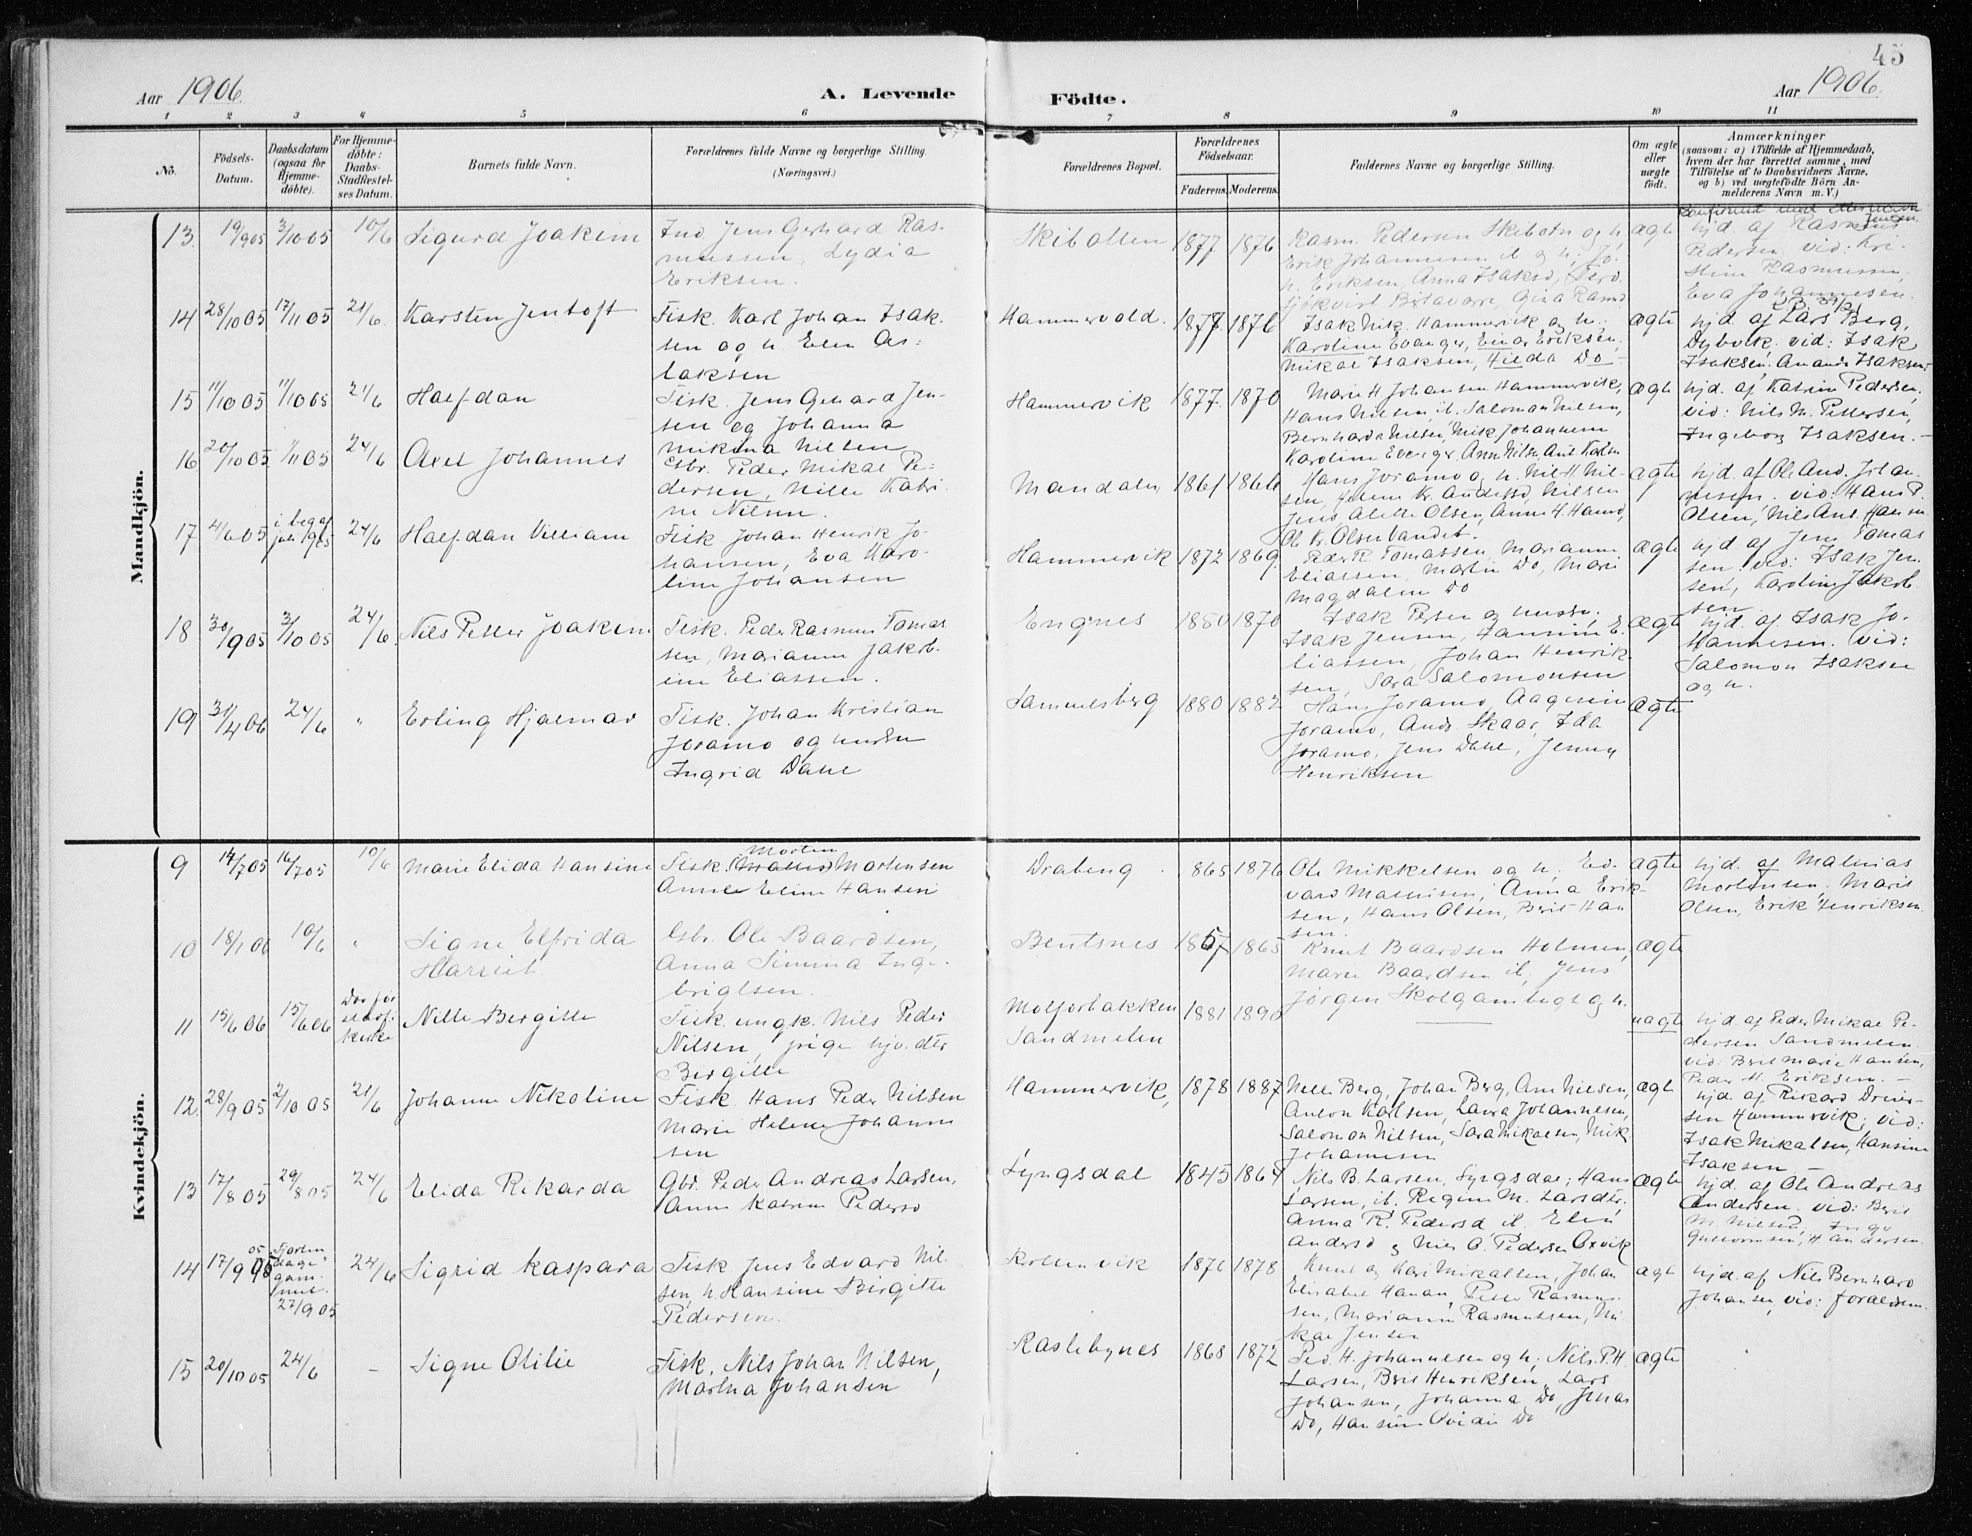 45
Aar 1906.
A. Levende
Födte.
Aar 1906.
1 2 3 4 5 6 7 8 9 10 11
No.
Födsels-Datum.
Daabsdatum (ogsaa for Hjemmedöbte).
For Hjemmedöbte: Daabs-Stadfæstelses Datum.
Barnets fulde Navn.
Forældrenes fulde Navne og borgerlige Stilling. (Næringsvei.)
Forældrenes Bopæl.
Forældrenes Födselsaar.
Faderens. Moderens.
Faddernes Navne og borgerlige Stilling.
Om ægte eller uægte födt.
Anmærkninger
(saasom: a) i Tilfælde af Hjemmedaab,
hvem der har forrettet samme, med
Tilföielse af to Daabsvidners Navne,
og b) ved uægtefödte Börn An-
melderens Navn m. V.)
Mandkjön.
13. 19/9 05 3/10 05 10/6 Sigurd Joakim
Ind Jens Gerhard Ras-
mussen, Lydia
Eriksen.
Skibotten 1877 1876
Rasm. Pedersen Skibotn og h
Erik Johannesen
Eriksen, Anna Isaksd,
ægte
hjd. af Rasmus
Pedersen vid: Kri-
stine Rasmussen,
Eva Johannesen.
14 28/10 05 17/11 05 21/6. Karsten Jentoft
Fisk. Karl Johan Isak-
sen og h. Elen As-
laksen
Hammervold. 1877. 1876
Isak Mik. Hammervik og h.;
Karoline Evanger, Einar Eriksen,
Mikal Isaksen, Hilda Do
ægte
hjd. af Lars Berg,
Dybvik. vid: Isak
Isaksen, Amanda Isaksen.
15 11/10 05 11/10 05 21/6 Halfdan
Fisk. Jens Gerhard Jen-
sen og Johanna
Mikina Nilsen
Hammervik 1877. 1870
Marie H Johansen Hammervik,
Hans Nilsen, il. Salomon Nilsen,
Bernharda Nilsen, Mik Johannesen
Karoline Evanger, Ane Nilsen Ant Karlsen
ægte
hjd. af Katrin Pedersen,
vid: Nils M. Pettersen,
Ingeborg Isaksen.
16 20/10 05 1/11 05 24/6 Axel Johannes
Gbr. Peder Mikal Pe-
dersen, Nille Katri-
ne Nilsen.
Mandalen 1861 1866
Hans Joramo og h. Nil H Nil-
sen,
Jens Alette Olsen, Anne H. Hansd,
Ol Kr. Olsen Vandet.
ægte
hjd. af Ole And. Johan-
nesen. vid: Hans P.
Olsen, Nils Ant. Hansen
17 4/6 05 i beg af juli 1905 24/6 Halfdan Villiam
Fisk. Johan Henrik Jo-
hansen, Eva Karo-
line Johansen
Hammervik 1872 1869
Peder R Tomassen, Marianne
Eliassen, Martin Do, Marie
Magdalen Do
ægte
hjd. af Jens Tomas
sen vid: Isak Jen-
sen, Karoline Jakob-
sen
18 30/9 05 3/10 05 24/6. Nils Petter Joakim
Fisk. Peder Rasmus Tomas
sen, Marianne Jakob-
ine Eliassen.
Engnes 1850 1870
Isak Peter og hustru,
Isak Jensen, Hansine E-
liassen, Johan Henrik-
sen, Sara Salomonsen
ægte
hjd. af Isak Jo-
hannesen. vid:
Salomon Isaksen
og h.
19 30/4 06 24/6 " Erling Hjalmar
Fisk. Johan Kristian
Joramo og hustru
Ingrid Dahl
Sammelsberg 1880 1882
Hans Joramo, Aagesin
Joramo, Andr Skaar, Ida
Joramo, Jens Dahl, Jenny
Henriksen
ægte
Kvindekjön.
9 14/7 05 16/7 05 10/6 Marie Elida Hansine
Morten
Fisk. (Mattis) Mortensen
Anne Eline Hansen
Drabeng. 1865 1876
Ole Mikkelsen og h, Ed-
vard Mathisen, Anna Erik-
sen, Hans Olsen, Berit Han
sen.
ægte
hjd. af Mathias
Mortensen, Marit
Olsen, Erik Henriksen
10 18/1 06 10/6 " Signe Elfrida
Harriet.
Gbr. Ole Baardsen,
Anna Simina Inge-
brigtsen.
Bentsnes 1867 1865
Knut Baardsen Holmen,
Marie Baardsen il, Jens
Jørgen Skolgambugt og h.
ægte
11 13/6 06 15/6 06 Døv før stadf. kirke Nille Bergitte
Fisk. ungk. Nils Peder
Nilsen, pige hjv. dtr
Bergitte
Molforbakken
Sandmelen
1881 1890
uægte
hjd. af Peder Mikal Pe-
dersen Sandmelen
vid: Berit Marie Hansen,
Peder H. Eriksen.
12. 28/9 05 2/10 05 21/6 Johanne Nikoline
Fisk Hans Peder Nilsen
Marie Helene Johannes
sen
Hammervik, 1878 1887
Nelle Berg, Johan Berg, Ane Nilsen,
Anton Karlsen, Laura Johannesen,
Salomon Nilsen, Sara Mikalsen, Mik
Johannesen
ægte
hjd. af Rikard Dreier-
sen Hammervik; vid:
Isak Mikalsen, Hansine
Isaksen
13 17/8 05 29/8 05 24/6 Elida Rikarda
Gbr. Peder Andreas Larsen,
Anne Katrine Pedersd
Lyngsdal 1845 1864
Nils B. Larsen, Lyngsdal; Hans
Larsen, il. Regine M. Larsdtr.
Anna R. Pedersd il. Elen
Andersd og Nils O. Pedersen Oxvik
ægte
hjd. af Ole Andreas
Andersen. vid: Berit
M. Nilsen, Inga
Gulormsen, H. Andersen.
14 17/9 05 Fjorten dage gam. 27/9 05 24/6 Sigrid Kaspara
Fisk Jens Edvard Nil-
sen, h. Hansine Birgitte
Pedersen.
Kollenvik 1876 1878
Knut og Kari Mikalsen, Johan
Elisabet Hansen, Peder Rasmus-
sen, Marianne Rasmussen, Mi
kal Jensen
ægte
hjd. af Nils Bernhard
Johansen, vid: forældrene.
15 20/10 05 24/6 - Signe Otilie
Fisk, Nils Johan Nilsen,
Martha Johansen
Rasletynes 1868 1872
Ped. H. Johannesen og h, Nils P. H.
Larsen, Berit Henriksen, Lars
Johansen, Johanna Do, Jonas
Do, Hansine Ovidie Do
ægte